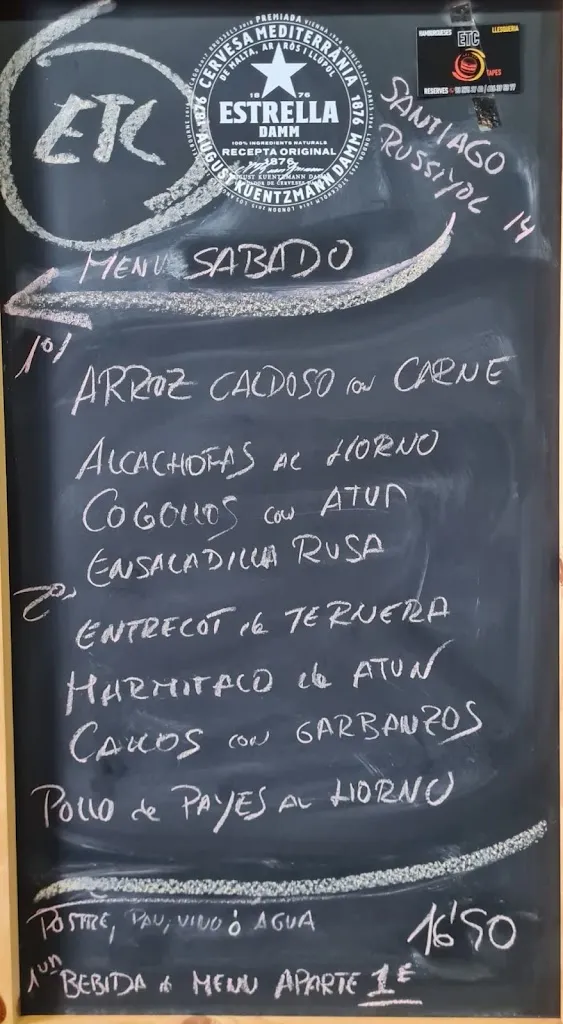 ETC
PREMIADA
CERVESA MEDITERRÀNIA
DE MALTA, ARRÒS I LLÚPOL
1876
1876
1876
ESTRELLA
DAMM
100% INGREDIENTS NATURALS
RECEPTA ORIGINAL
1876
AUGUST KUENTZMANN DAMM
HAMBURGUESES
ETC
LLESQUERIA
TAPES
RESERVES
SANTIAGO
RUSSIYOL 14
MENU SABADO
1º/
ARROZ CALDOSO con CARNE
ALCACHOFAS AL HORNO
COGOLLOS con ATUN
ENSALADILLA RUSA
2º
ENTRECOT de TERNERA
MARMITACO de ATUN
CALLOS con GARBANZOS
POLLO de PAYES AL HORNO
POSTRE, PAU, VINO ó AGUA
16'50
1un BEBIDA de MENU APARTE 1€